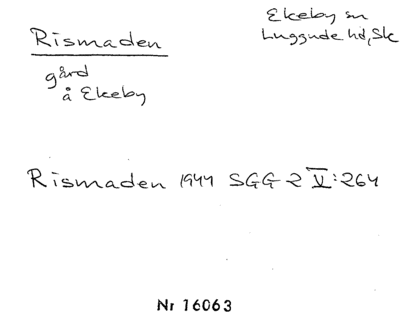 Rismaden
gård
å Ekeby
Ekeby sn
Luggude hd, Sk
Rismaden 1944 SGG 2 V:264
Nr 16063